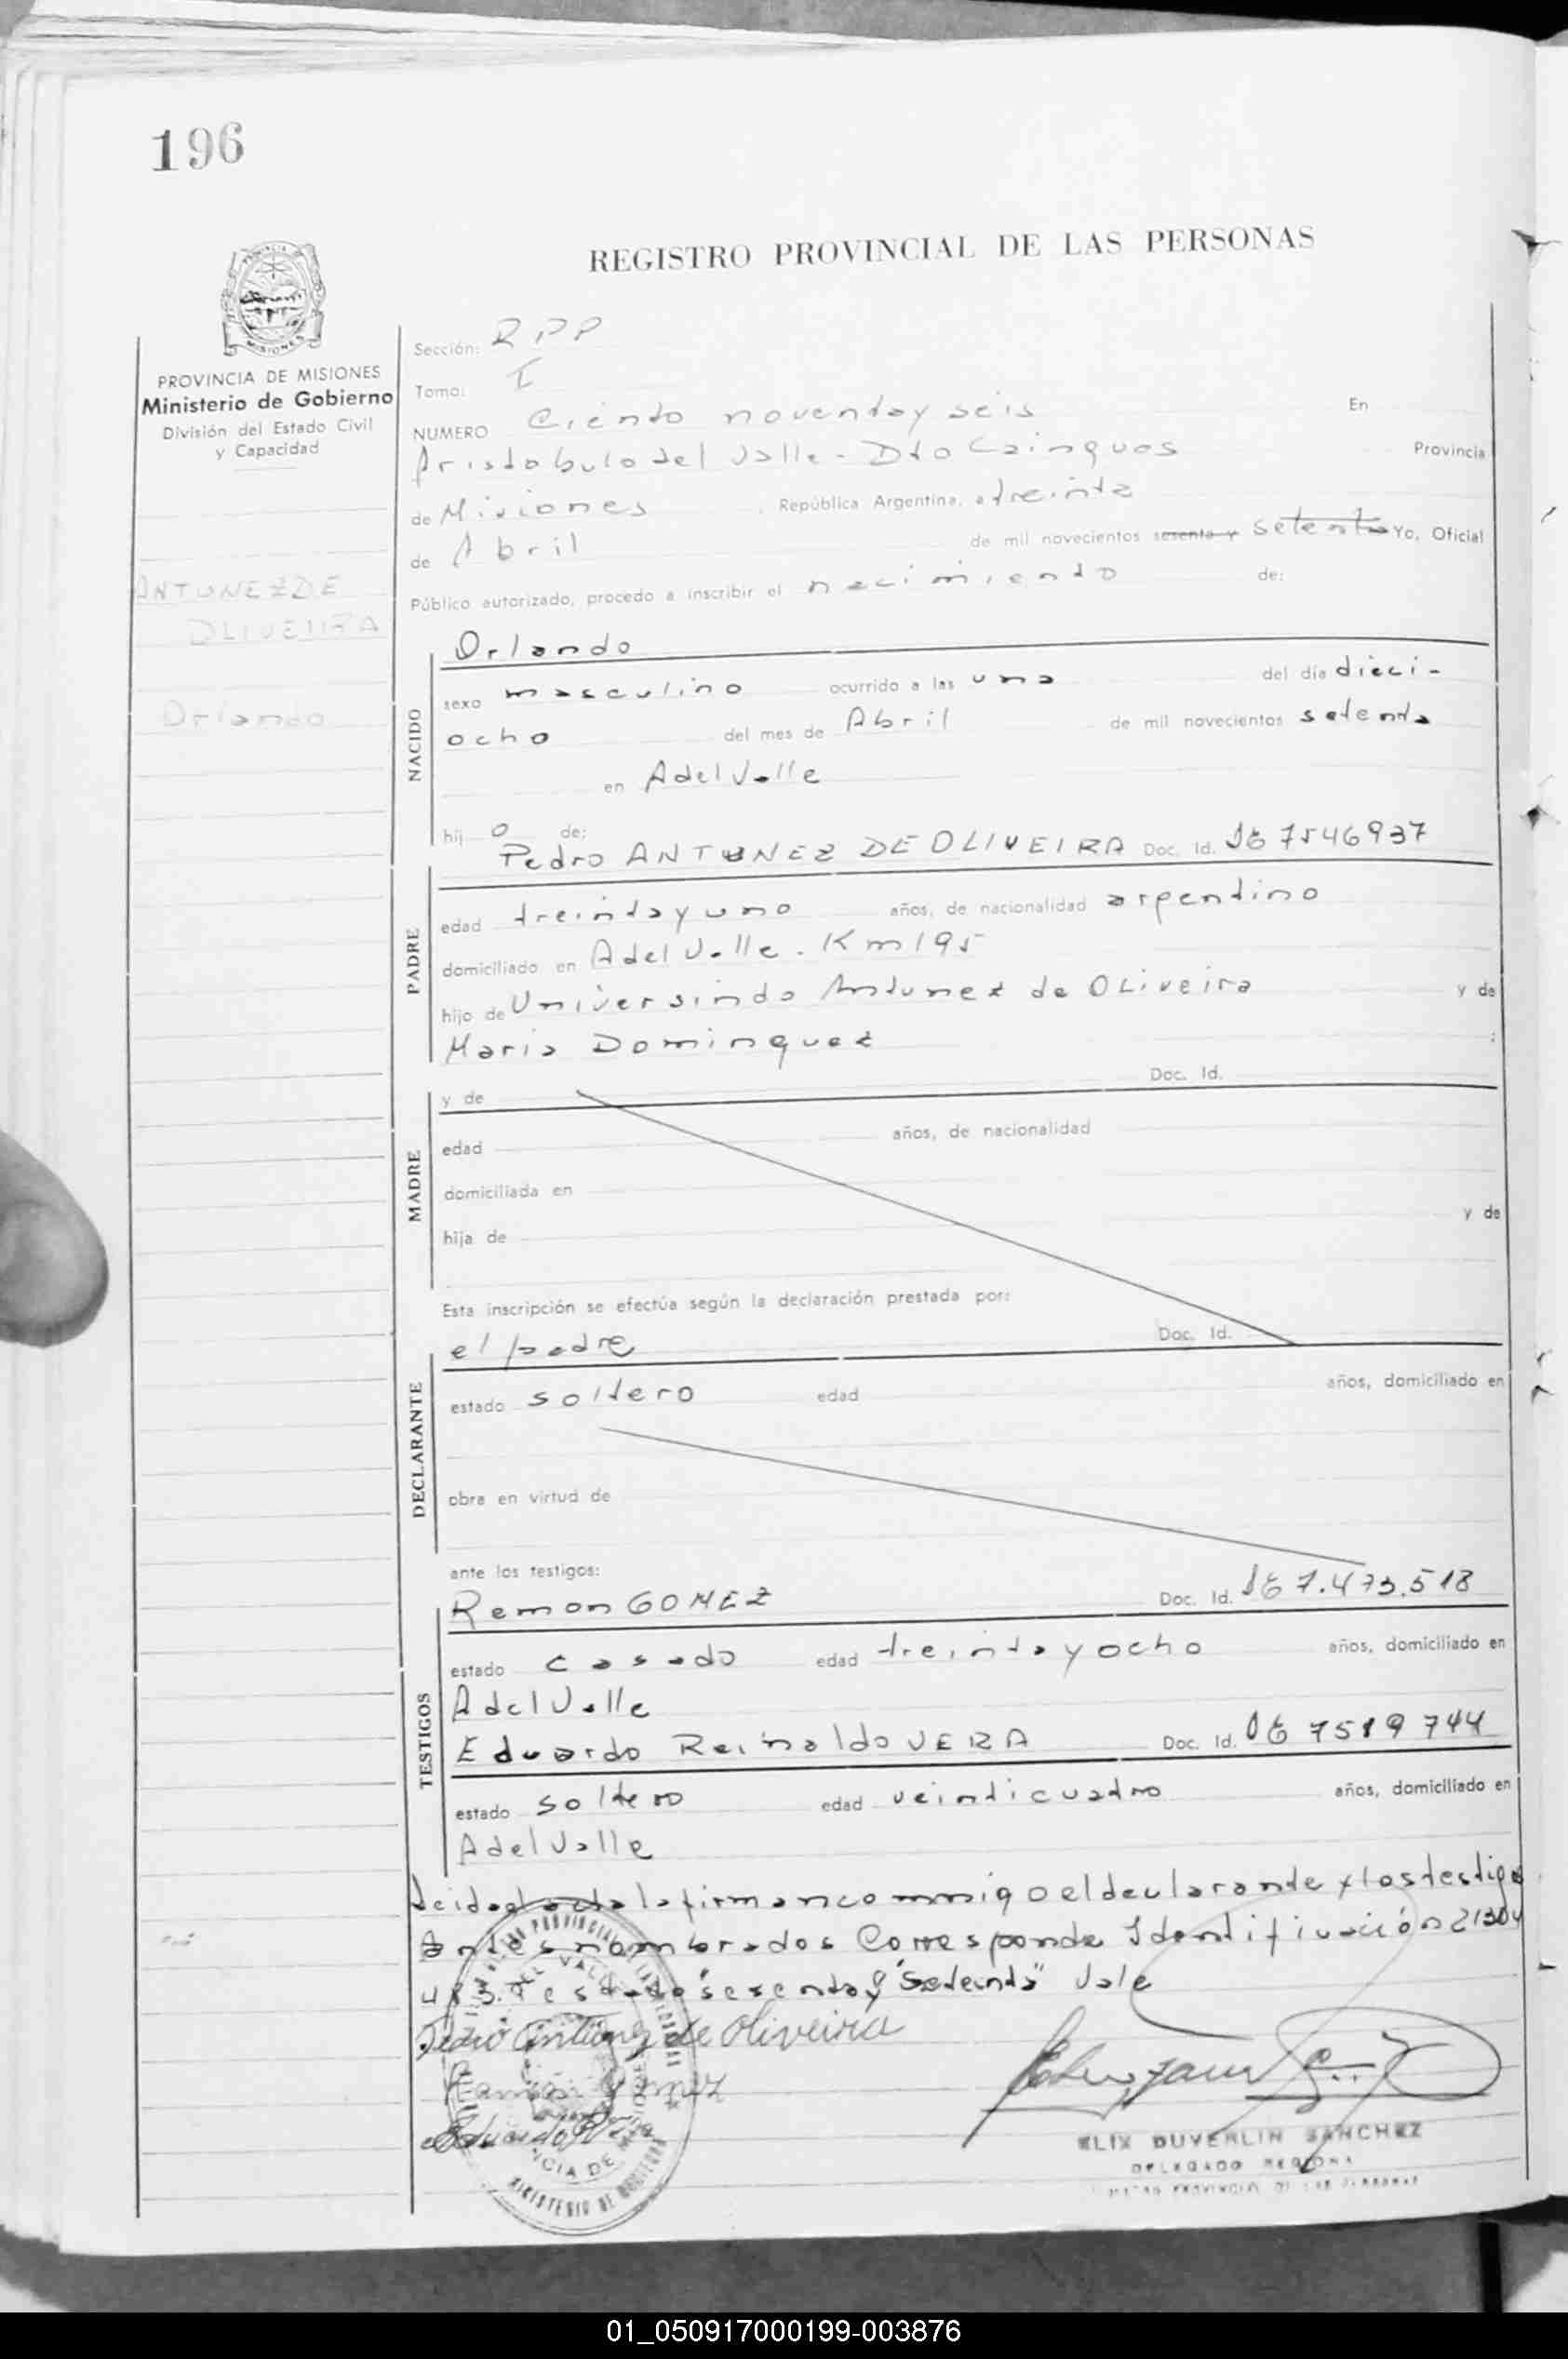 196
REGISTRO PROVINCIAL DE LAS PERSONAS
PROVINCIA DE MISIONES
Ministerio de Gobierno
División del Estado Civil
y Capacidad
ANTUNEZ DE
OLIVEIRA
Orlando
Sección: RPP
Tomo: I
NUMERO Ciento noventa y seis En
Aristobulo del Valle - Dto Cainguas Provincia
de Misiones República Argentina, a treinta
de Abril de mil novecientos sesenta y setenta Yo, Oficial
Público autorizado, procedo a inscribir el nacimiento de:
NACIDO
Orlando
sexo masculino ocurrido a las una del día dieci-
ocho del mes de Abril de mil novecientos setenta
en A del Valle
hij o de:
PADRE
Pedro ANTUNEZ DE OLIVEIRA Doc. Id. 7546937
edad treinta y uno años, de nacionalidad argentino
domiciliado en A del Valle. Km 195
hijo de Universindo Antunez de Oliveira y de
Maria Dominguez ;
MADRE
y de Doc. Id.
edad años, de nacionalidad
domiciliada en
hija de y de
Esta inscripción se efectúa según la declaración prestada por:
DECLARANTE
el padre Doc. Id.
estado soltero edad años, domiciliado en
obra en virtud de
ante los testigos:
TESTIGOS
Ramon GOMEZ Doc. Id. 7.473.518
estado casado edad treinta y ocho años, domiciliado en
A del Valle
Eduardo Reinaldo VERA Doc. Id. 7519744
estado soltero edad veinticuatro años, domiciliado en
A del Valle
Leida el acta la firman conmigo el declarante y los testigos
antes nombrados Corresponde Identificación 21304
483. Testado "sesenta y" "Setenta" Vale
Pedro Antunez de Oliveira
Ramón Gomez
Eduardo R Vera
ELIX DUVERLIN SANCHEZ
DELEGADO REGIONA
PROVINCIAL DE LAS PERSONAS
01_050917000199-003876